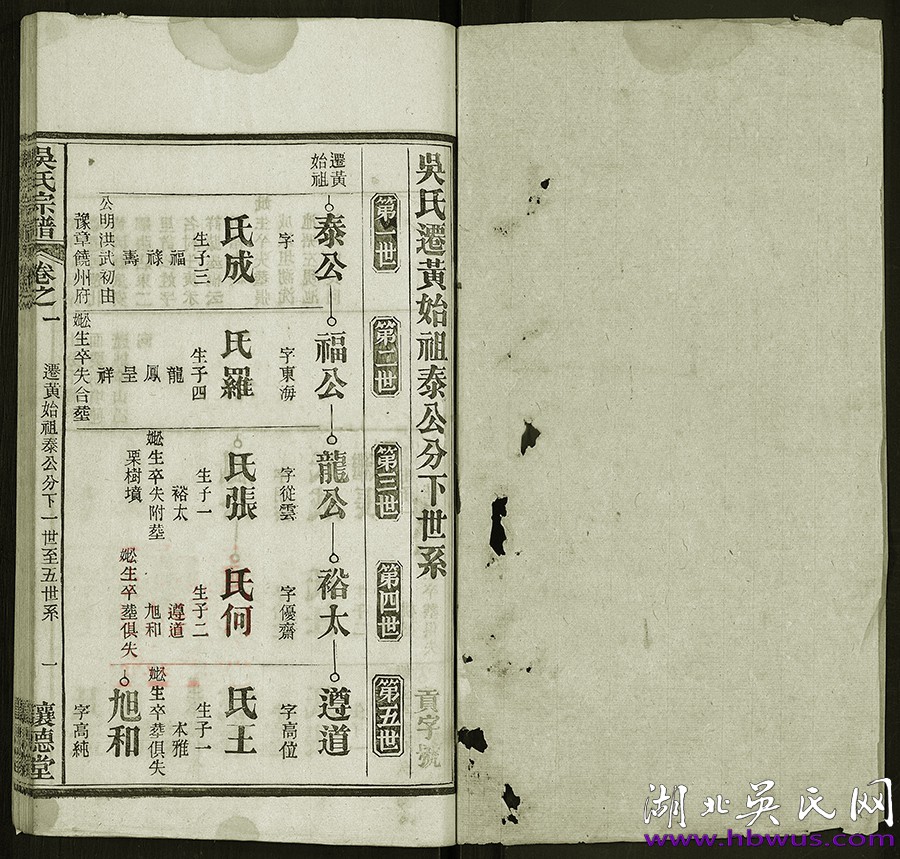 吳氏遷黃始祖泰公分下世系
貢字號
第一世
第二世
第三世
第四世
第五世
遷黃
始祖
泰公
字
成氏
生子三
福
祿
壽
公明洪武初由
豫章饒州府
福公
字東海
羅氏
生子四
龍
鳳
呈
祥
妣生卒失合塟
龍公
字從雲
張氏
生子一
裕太
妣生卒失附塟
栗樹墳
裕太
字優齋
何氏
生子二
遵道
旭和
妣生卒塟俱失
遵道
字高位
王氏
生子一
本雅
妣生卒塟俱失
旭和
字高純
吳氏宗譜
卷之一
遷黃始祖泰公分下一世至五世系
一
讓德堂
湖北吳氏网
www.hbwus.com